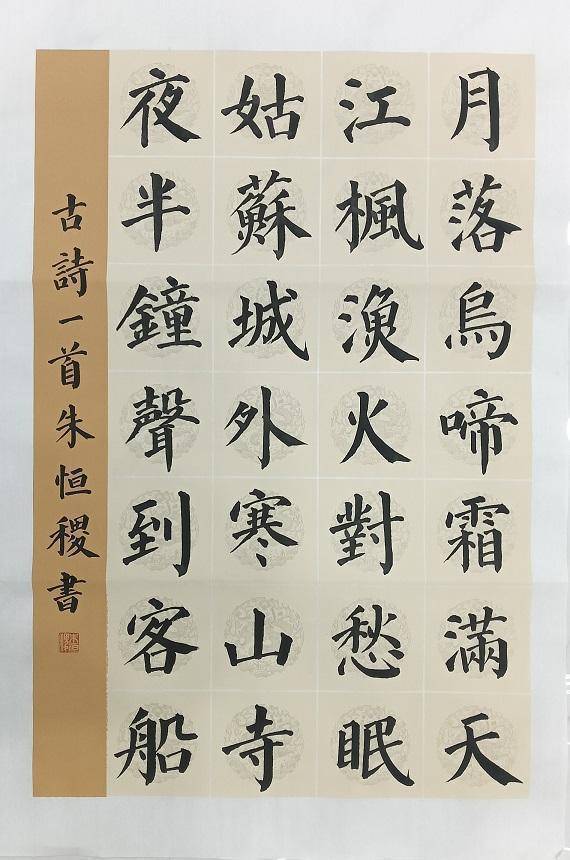 月落烏啼霜滿天
江楓漁火對愁眠
姑蘇城外寒山寺
夜半鐘聲到客船
古詩一首朱恒稷書